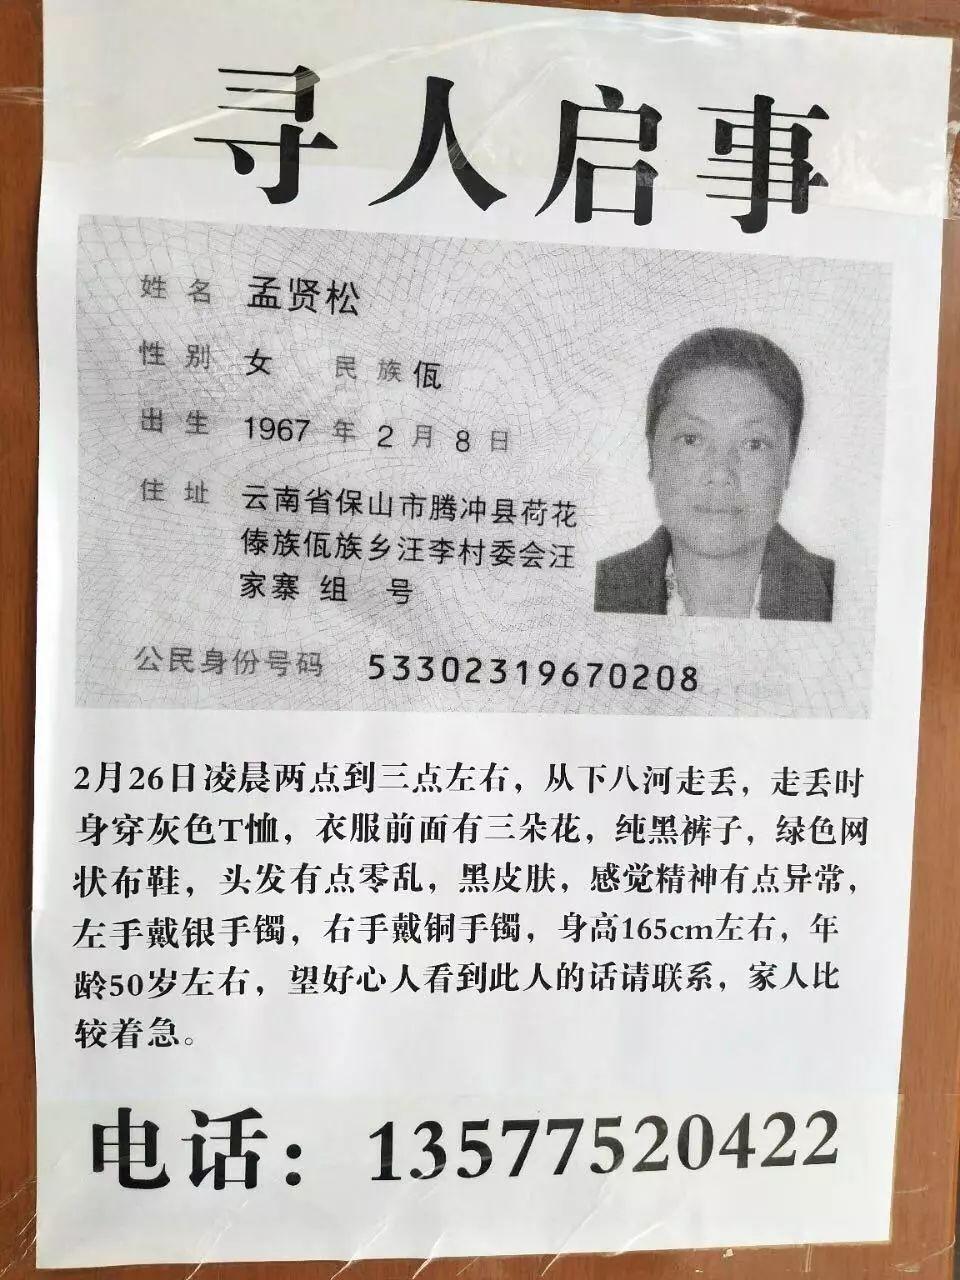 寻人启事
姓名 孟贤松
性别 女 民族 佤
出生 1967 年 2 月 8 日
住址 云南省保山市腾冲县荷花
傣族佤族乡汪李村委会汪
家寨 组 号
公民身份号码 53302319670208
2月26日凌晨两点到三点左右，从下八河走丢，走丢时
身穿灰色T恤，衣服前面有三朵花，纯黑裤子，绿色网
状布鞋，头发有点零乱，黑皮肤，感觉精神有点异常，
左手戴银手镯，右手戴铜手镯，身高165cm左右，年
龄50岁左右，望好心人看到此人的话请联系，家人比
较着急。
电话：13577520422